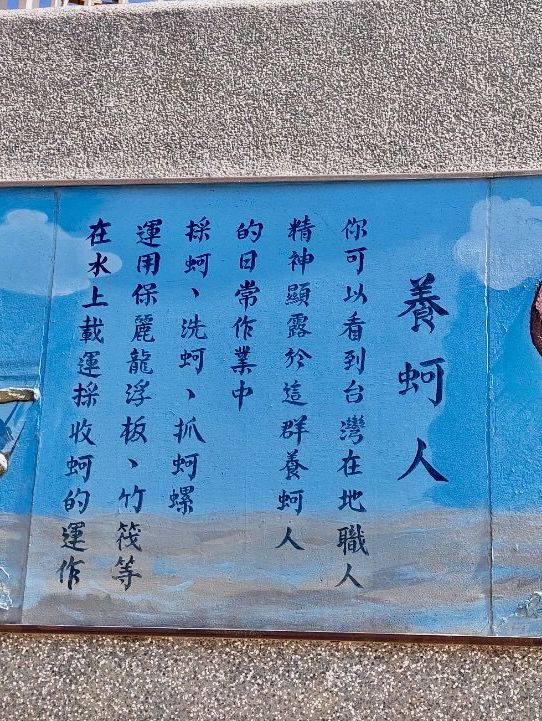 養蚵人
你可以看到台灣在地職人
精神顯露於這群養蚵人
的日常作業中
採蚵、洗蚵、抓蚵螺
運用保麗龍浮板、竹筏等
在水上載運採收蚵的運作